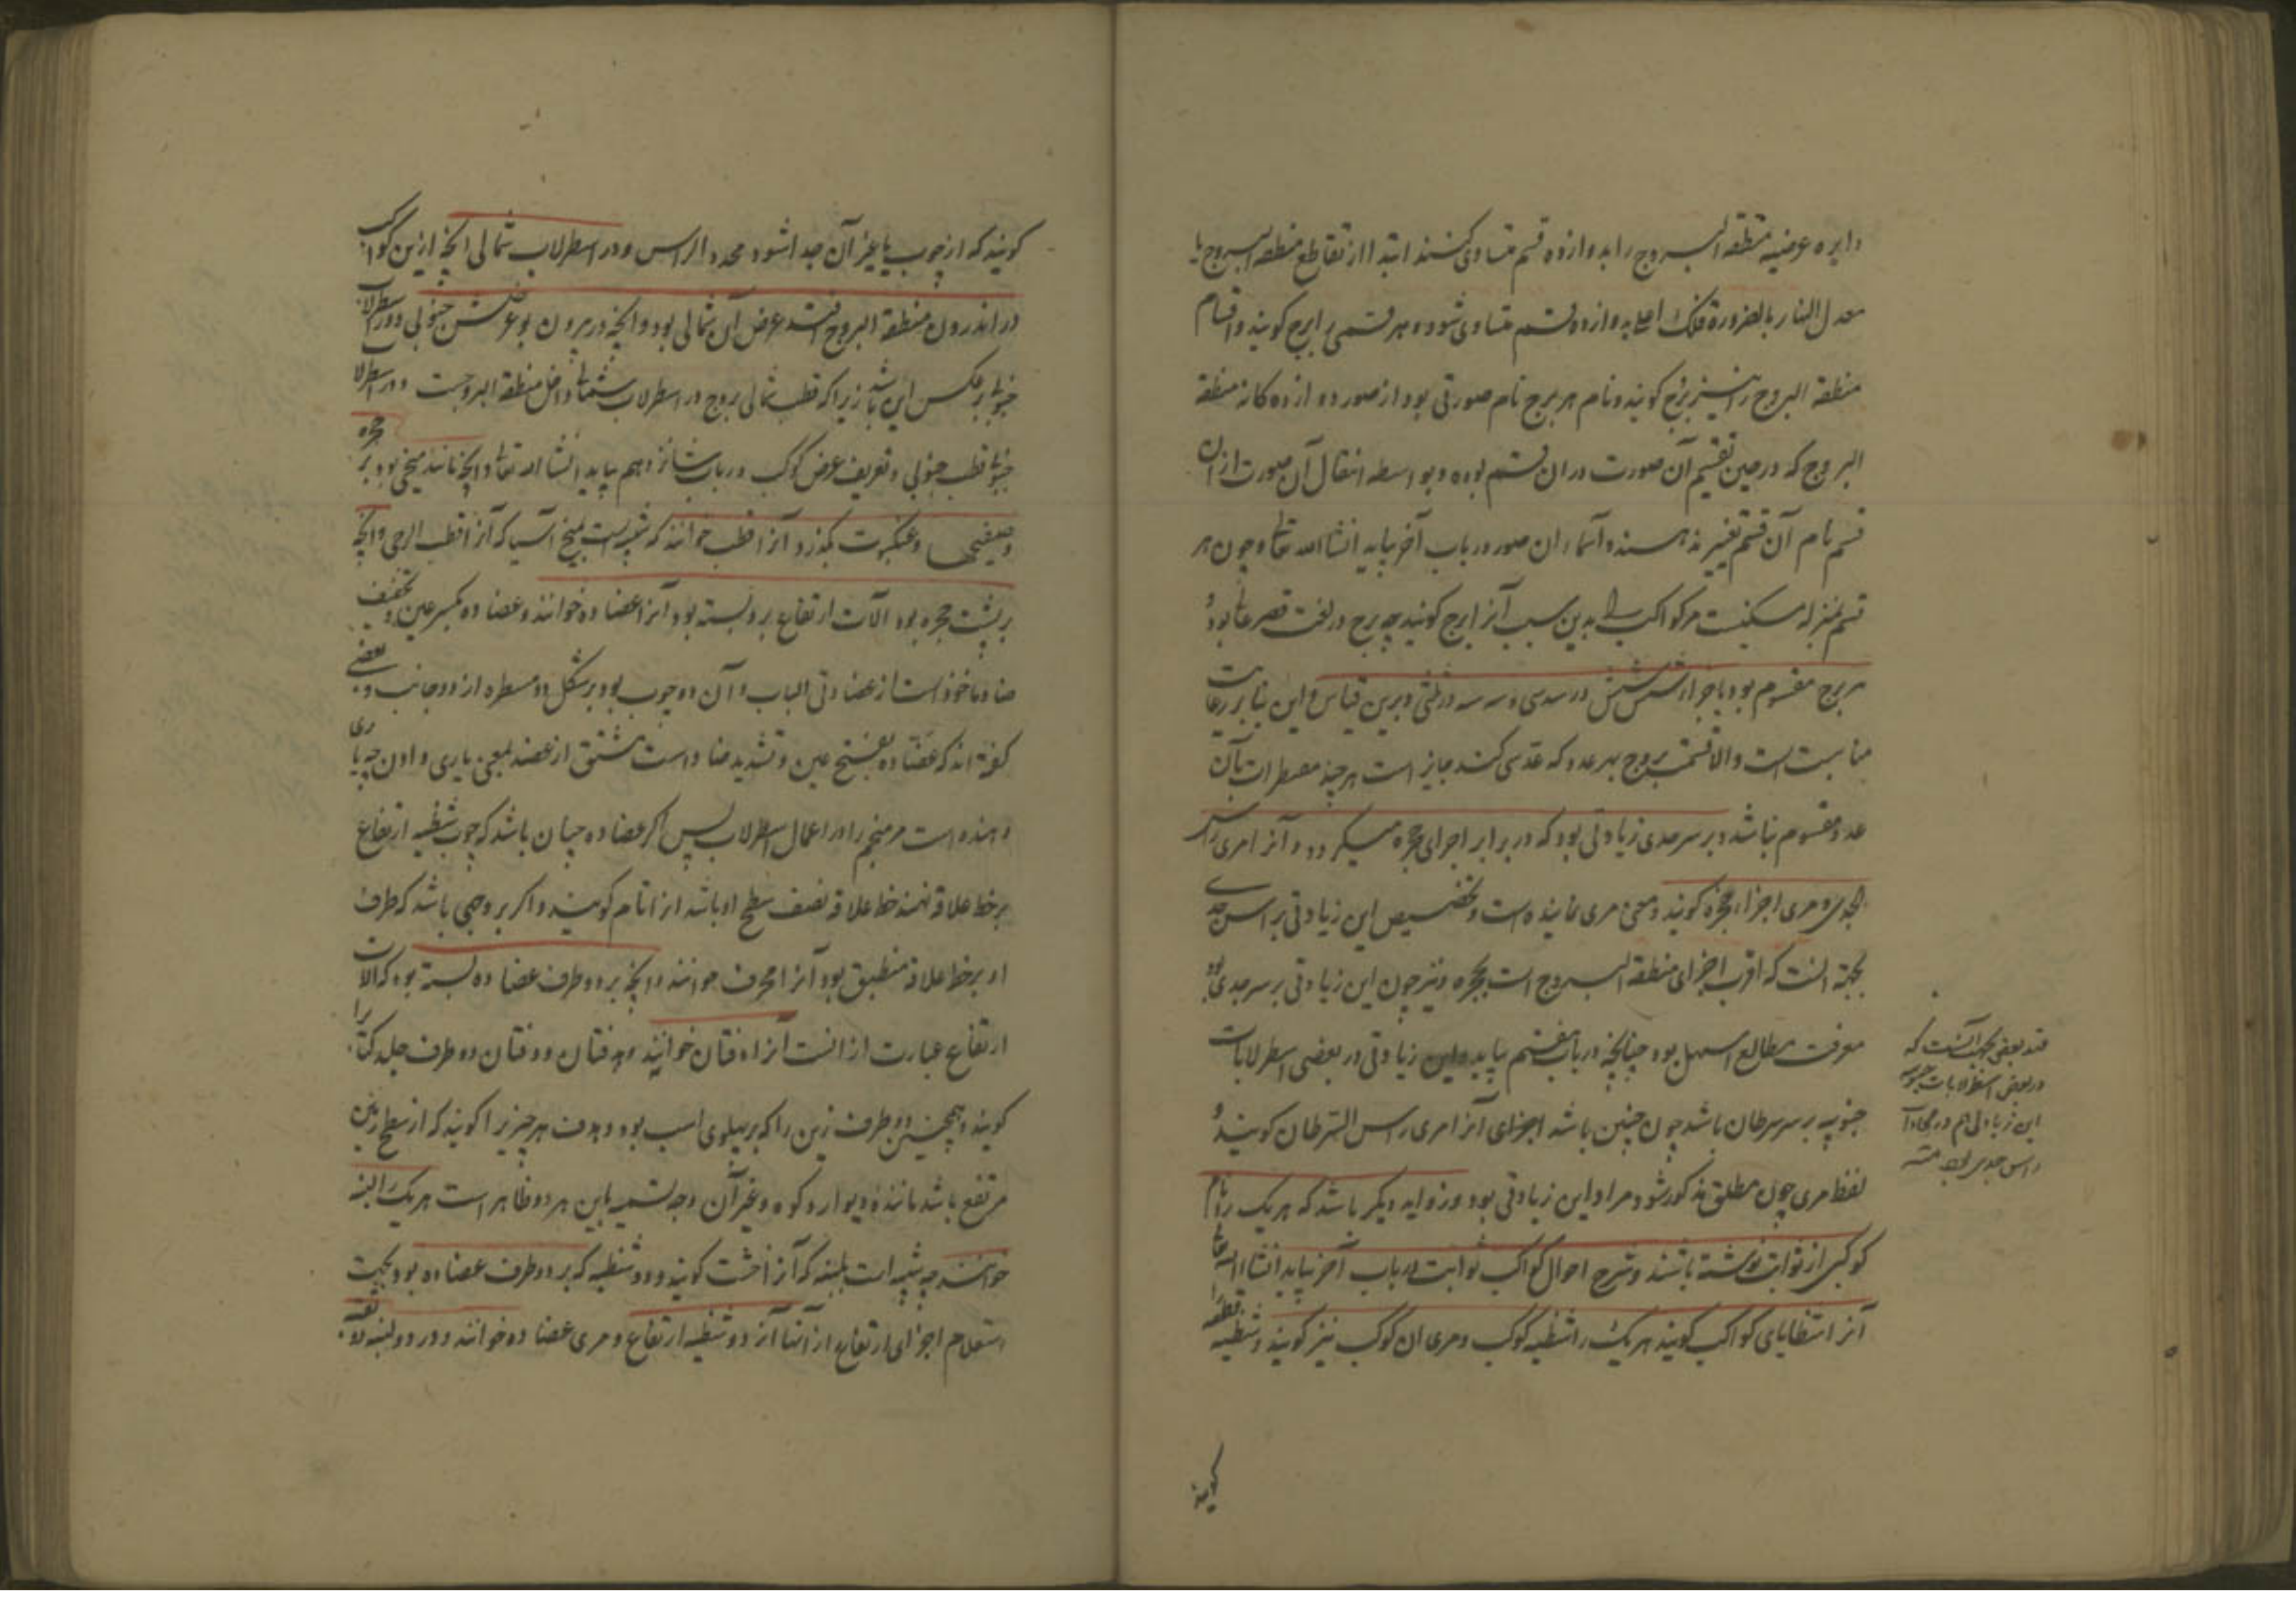 دایره عرضیه منطقة البروج را بدوازده قسم متساوی کنند ابتدا از تقاطع منطقة البروج با
معدل النهار بالضرورة فلک اعلی بدوازده قسم متساوی شود و هر قسمی را برج کویند و اقسام
منطقة البروج را نیز برج کویند و نام هر برج نام صورتی بود از صور دوازده کانه منطقة
البروج که در حین تقسیم آن صورت در ان قسم بوده و بواسطه انتقال آن صورت از ان
قسم نام آن قسم تغییر ندهند و اسماء ان صور در باب آخر بیاید انشاء الله تعالی و چون هر
قسم بمنزله مسکنیست مر کواکب را بدین سبب آنرا برج کویند چه برج در لغت قصر عالی بود و
هر برج مقسوم بود باجزا شش شش در سدسی و سه سه در ثلثی و برین قیاس و این بنابر رعایت
مناسبت است و الا قسمت بروج بهر عدد که قسمت کنند جایز است هر چند مقنطرات بآن
عدد مقسوم نباشد و بر سر جدی زیادتی بود که در برابر اجزای حجره میکردد و آنرا مری راس
الجدی و مری اجزاء حجره کویند و معنی مری نماینده است و تخصیص این زیادتی براس جدی
بجهة انست که اقرب اجزای منطقة البروج است بحجره و نیز چون این زیادتی بر سر جدی بود
معرفت مطالع اسهل بود چنانچه در باب هفتم بیاید و این زیادتی در بعضی اسطرلابات
جنوبیه بر سر سرطان باشد چون چنین باشد اجزای آنرا مری راس السرطان کویند و
لفظ مری چون مطلق مذکور شود مراد این زیادتی بود و زوایه دیکر باشد که هر یک را نام
کوکبی از ثوابت نوشته باشند و شرح احوال کواکب ثوابت در باب آخر بیاید انشاء الله تعالی
آنرا شظایای کواکب کویند هر یک را شظیه کوکب و مری ان کوکب نیز کویند و شظیه قطعه را
کویند
قید بعضی بجهت آنست که
در بعضی اسطرلابات جنوبیه
این زیادتی هم در محاذات
راس جدی بود منه
کویند که از چوب یا غیر آن جدا شود محدد الراس و در اسطرلاب شمالی انچه ازین کواکب
در اندرون منطقة البروج افتد عرض آن شمالی بود و انچه در بیرون بود عرضش جنوبی و در اسطرلاب
جنوبی برعکس این باشد زیرا که قطب شمالی بروج در اسطرلاب شمالی داخل منطقة البروجست و در اسطرلاب
جنوبی قطب جنوبی و تعریف عرض کوکب در باب شانزدهم بیاید انشاء الله تعالی و انچه مانند میخی بود بر حجره
و صفیحها و عنکبوت بکذرد آنرا قطب خوانند که شبیه است بمیخ آسیا که آنرا قطب الرحی و انچه
بر پشت حجره بود آلات ارتفاع برو بسته بود آنرا عضاده خوانند و عضاده بکسر عین و تخفیف
ضاد ماخوذ است از عضادتی الباب و آن دو چوب بود بر شکل دو مسطره از دو جانب و بعضی
کفته اند که عضاده بفتح عین و تشدید ضاد است مشتق از عضد بمعنی یاری دادن چه یاری
دهنده است مر منجم را در اعمال اسطرلاب پس اکر عضاده چنان باشد که چون شظیه ارتفاع
بر خط علاقه نهند خط علاقه نصف سطح او باشد انرا تام کویند و اکر بر وجهی باشد که طرف
او بر خط علاقه منطبق بود آنرا محرف خوانند و انچه بر دو طرف عضاده بسته بود که آلات
ارتفاع عبارت از انست آنرا دفتان خوانند و هدفتان و دفتان دو طرف جلد کتاب را
کویند و همچنین دو طرف زین را که بر پهلوی اسب بود و هدف هر چیزیرا کویند که از سطح زمین
مرتفع باشد مانند دیوار و کوه و غیر آن و وجه تسمیه باین هر دو ظاهر است هر یک را لبنه
خوانند چه شبیه است بلبنه که آنرا خشت کویند و دو شظیه که بر دو طرف عضاده بود بجهت
استعلام اجزای ارتفاع از آنها آنرا دو شظیه ارتفاع و مری عضاده خوانند و در دو لبنه دو ثقبه